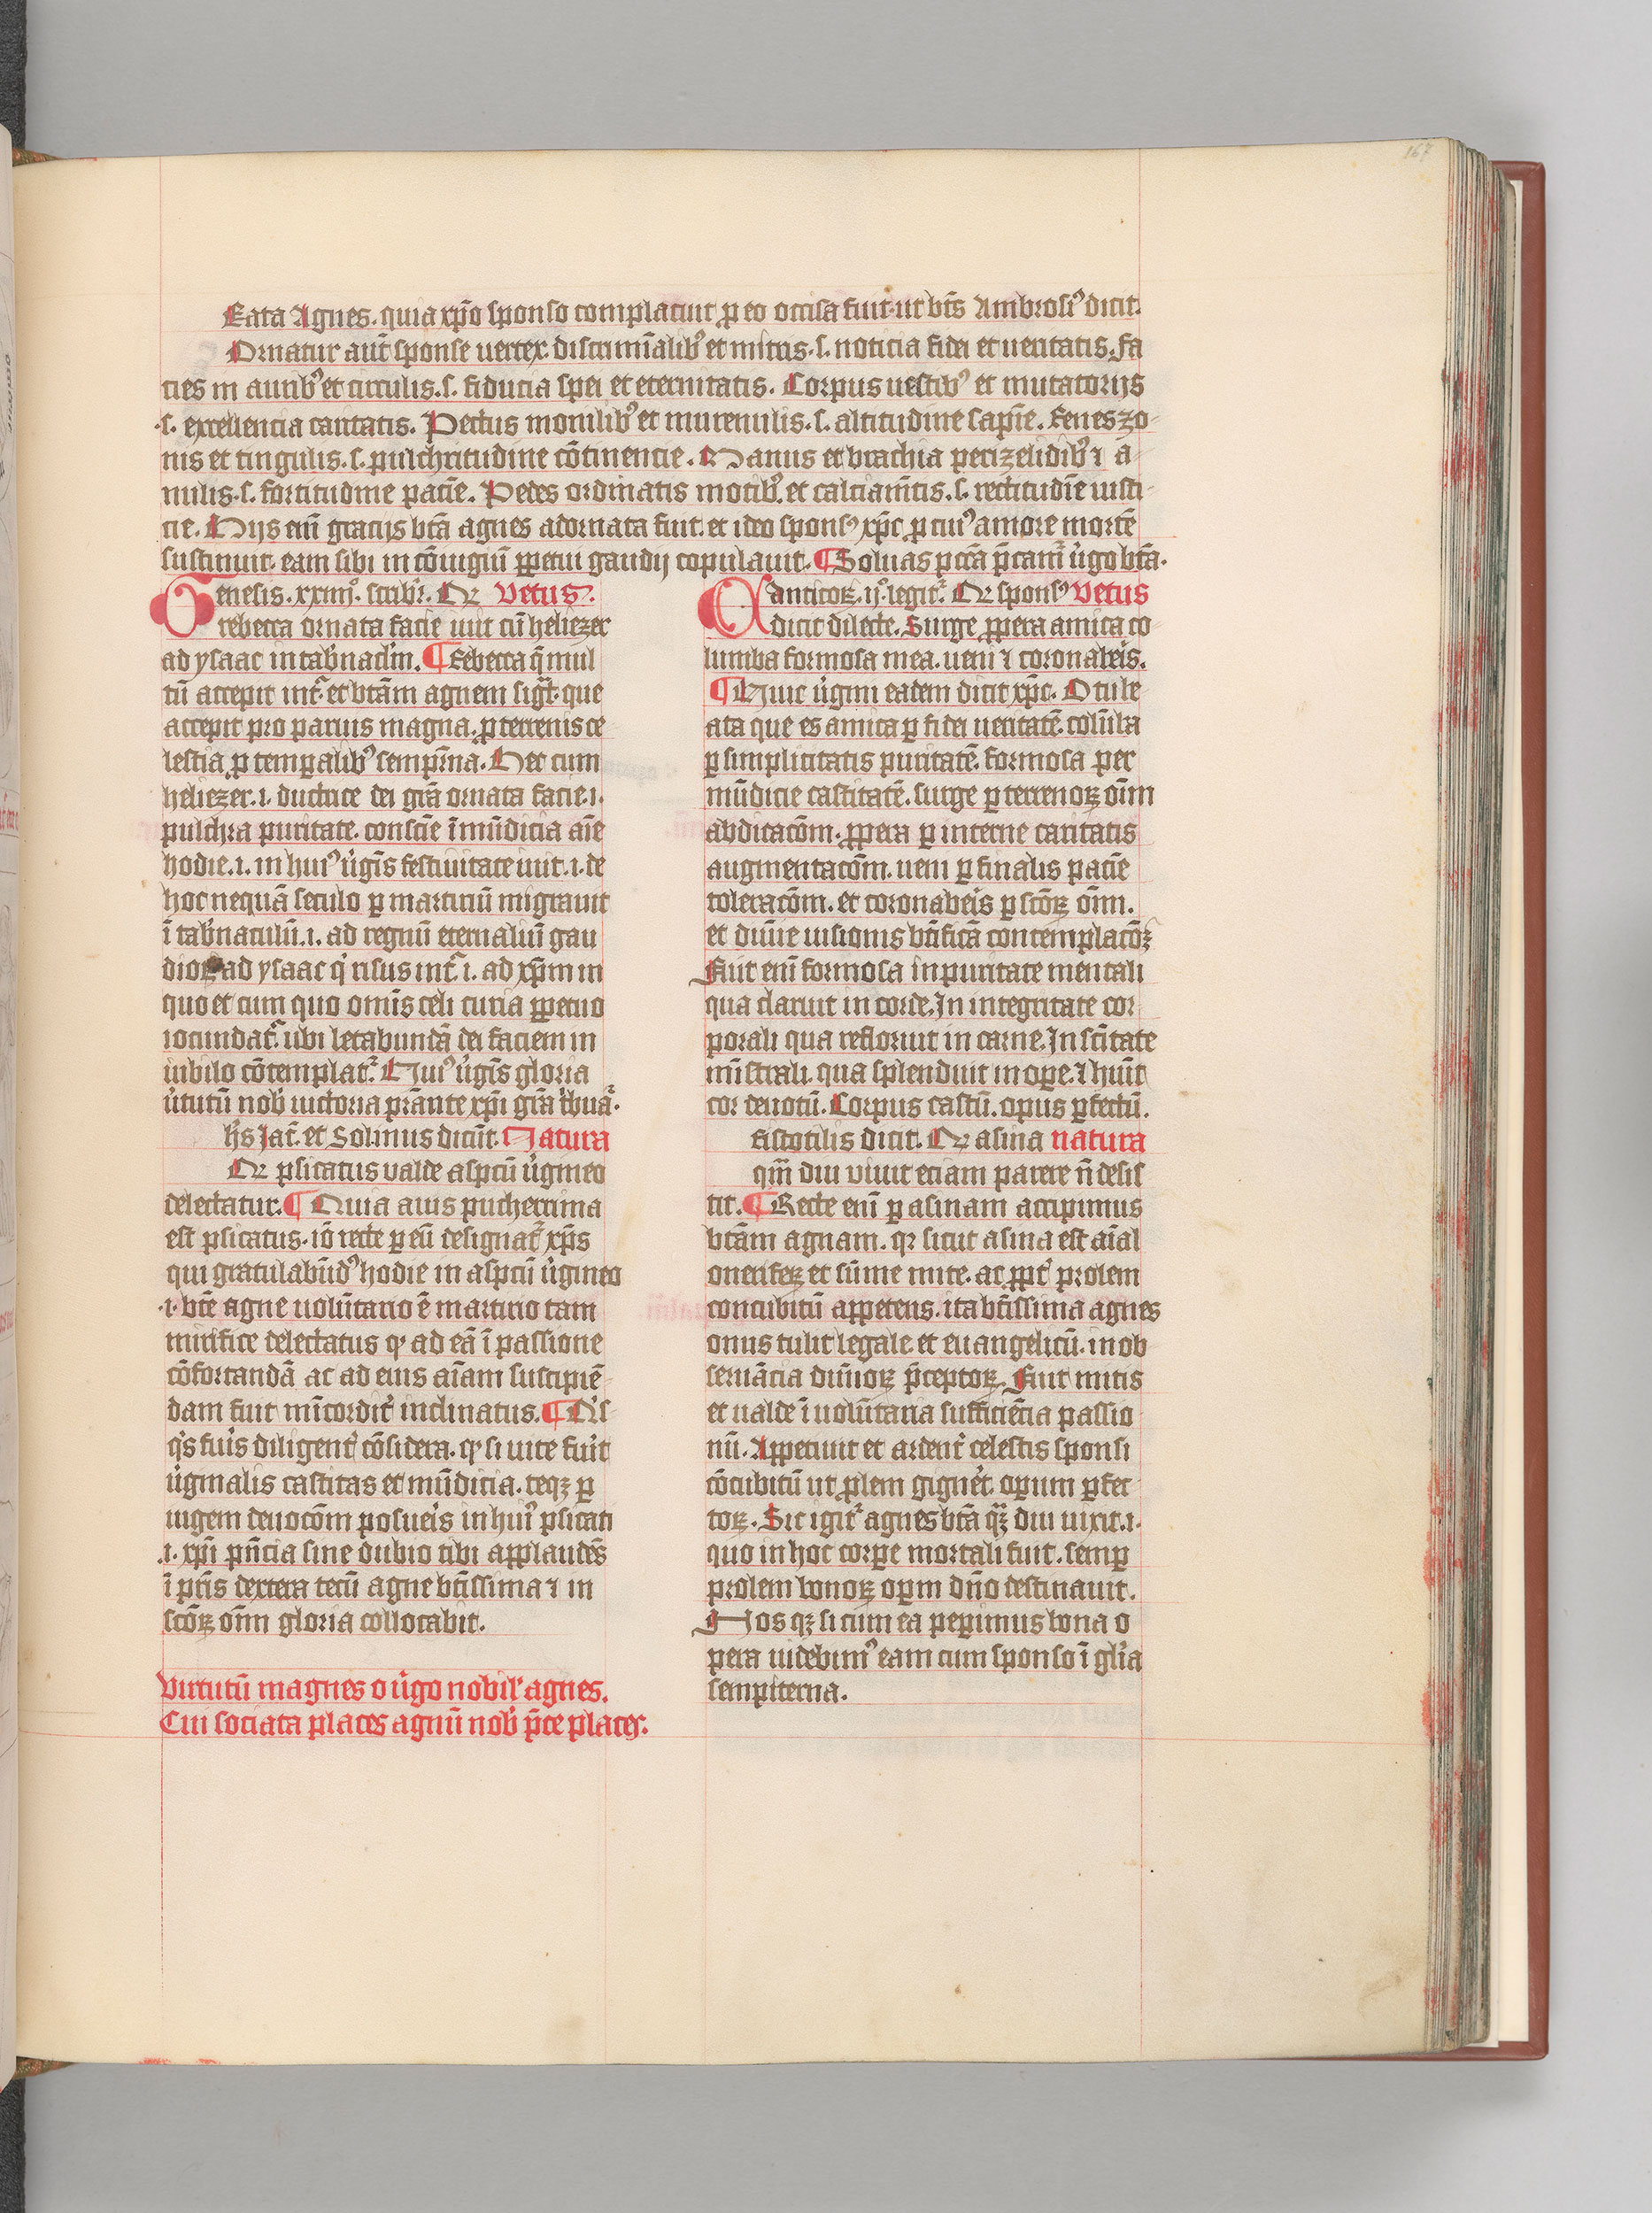 167
Eata Agnes. quia xp̄o sponso complacuit ꝓ eo occisa fuit. ut bt̄s Ambrosiꝰ dicit.
Ornatur aut̄ sponse uertex discrimīalibꝰ et mitris. s. noticia fidei et ueritatis. Fa
cies in auribꝰ et circulis. s. fiducia spei et eternitatis. Corpus uestibꝰ et mutatorijs
.s. excellencia caritatis. Pectus monilibꝰ et murenulis. s. altitudine sapīe. Renes zo-
nis et cingulis. s. pulchritudine cōtinencie. Manus et brachia perizelidibꝰ ⁊ a-
nulis. s. fortitudine pacīe. Pedes ordinatis motibꝰ. et calciam̄tis. s. rectitudīe iusti-
cie. Hijs eni̅ gracijs btā agnes adornata fuit. et ideo sponsꝰ xp̄c ꝓ cuiꝰ amore mortē
sustinuit. eam sibi in cōiugiū ꝑpetui gaudij copulauit. ¶ Soluas pccā p̄cam̄ u̓go btā.
Genesis. xxiiijº. scribr̄. Qꝛ Vetus.
rebecca ornata facie iuit cū heliezer
ad ysaac in tab̓nac̓lm. ¶ Rebecca q̄ mul
tū accepit int̓. et btām agnem sig̓t. que
accepit pro paruis magna. ꝓ terrenis ce
lestia ꝓ temꝑalibꝰ semp̓rna. Hec cum
heliezer. i. ductrice dei grā ornata facie. i.
pulchra puritate. conscīe ī mūdicia aīe
hodie. i. in huiꝰ u̓gīs festiuitate iuit. i. de
hoc nequā seculo ꝑ martiriū migrauit
ī tab̓naculū. i. ad regnū eternaliū gau
dioꝝ ad ysaac q̓ risus int̓. i. ad xp̄m in
quo et cum quo om̄is celi curia ꝑpetuo
iocundat̓. ubi letabundā dei faciem in
iubilo cōtemplat̓. Huiꝰ u̓gīs gloria
u̓tutū nob̓ uictoria prān̄te xp̄i grā t̓buat̓.
h̓s Jac̄. et Solinus dicūt. Natura
Qꝛ psicatus valde asp̄cū u̓gineo
delectatur. ¶ Quia auis pucherrima
est psicatus. iō recte ꝑ eū designat̓ xp̄s
qui gratulabūdꝰ hodie in asp̄cū u̓gineo
.i. bt̄e agne uolūtario ē martirio tam
mirifice delectatus qꝫ ad eā ī passione
cōfortandā ac ad eius aīam suscipiē-
dam fuit mīcordit̓ inclinatus. ¶ Q̓s-
q̓s fu̓is diligent̓ cōsidera. qꝫ si uite fu̓it
u̓ginalis castitas et mūdicia. teqꝫ ꝑ
iugem deuocōm posueris in huiꝰ psicati
.i. xp̄i pn̄cia sine dubio tibi applaudēs
ī pr̄is dextera tecū agne bt̄issima ⁊ in
scōꝝ om̄i gloria collocabit.
Virtutū magnes o u̓go nobil̓ agnes.
Cui sociata places agnū nob̓ p̄ce places.
Canticoꝝ. ijº. legit̓. Qꝛ sponsꝰ Vetus
dicit dilecte. Surge ꝓpera amica co-
lumba formosa mea. ueni ⁊ coronaberis.
¶ Huic u̓gini eadem dicit xp̄c. O tu be-
ata que es amica ꝑ fidei ueritatē. colūba
ꝑ simplicitatis puritatē. formosa per
mūdicie castitatē. surge ꝑ terrenoꝝ oīm
abdicacōm. ꝓpera ꝑ interne caritatis
augmentacōm. ueni ꝑ finalis pacīe
toleracōm. et coronaberis ꝑ scōꝝ om̄.
et diuīe uisionis bīficā contemplacōꝫ
Fuit eni̅ formosa in puritate mentali
qua claruit in corde. In integritate cor
porali qua refloruit in carne. In sc̄itate
mīstrali. qua splenduit in oꝑe. ⁊ huit
cor deuotū. Corpus castū. opus ꝑfectū.
ristotilis dicit. Qꝛ asina natura
qm̄ diu viuit eciam parere n̄ desis
tit. ¶ Recte eni̅ ꝑ asinam accipimus
btām agnam. qꝛ sicut asina est aīal
onerifeꝝ et sūme mite. ac ꝓpt̓ prolem
concubitū appetens. ita bt̄issima agnes
onus tulit legale et euangelicū. in ob
seruācia diuīoꝝ p̄ceptoꝝ. Fuit mitis
et ualde ī uolūtaria sufficiēcia passio
nū. Appetiuit et ardent̓ celestis sponsi
cōcubitū ut ꝓlem gign̓et. oꝑum ꝑfec
toꝝ. Sic igit̓ agnes btā qꝫ diu uixit. i.
quo in hoc corꝑe mortali fuit. semꝑ
prolem bonoꝝ oꝑm dn̄o destinauit.
Nos qꝫ si cum ea peꝑimus bona o
pera uidebimꝰ eam cum sponso ī gl̓ia
sempiterna.